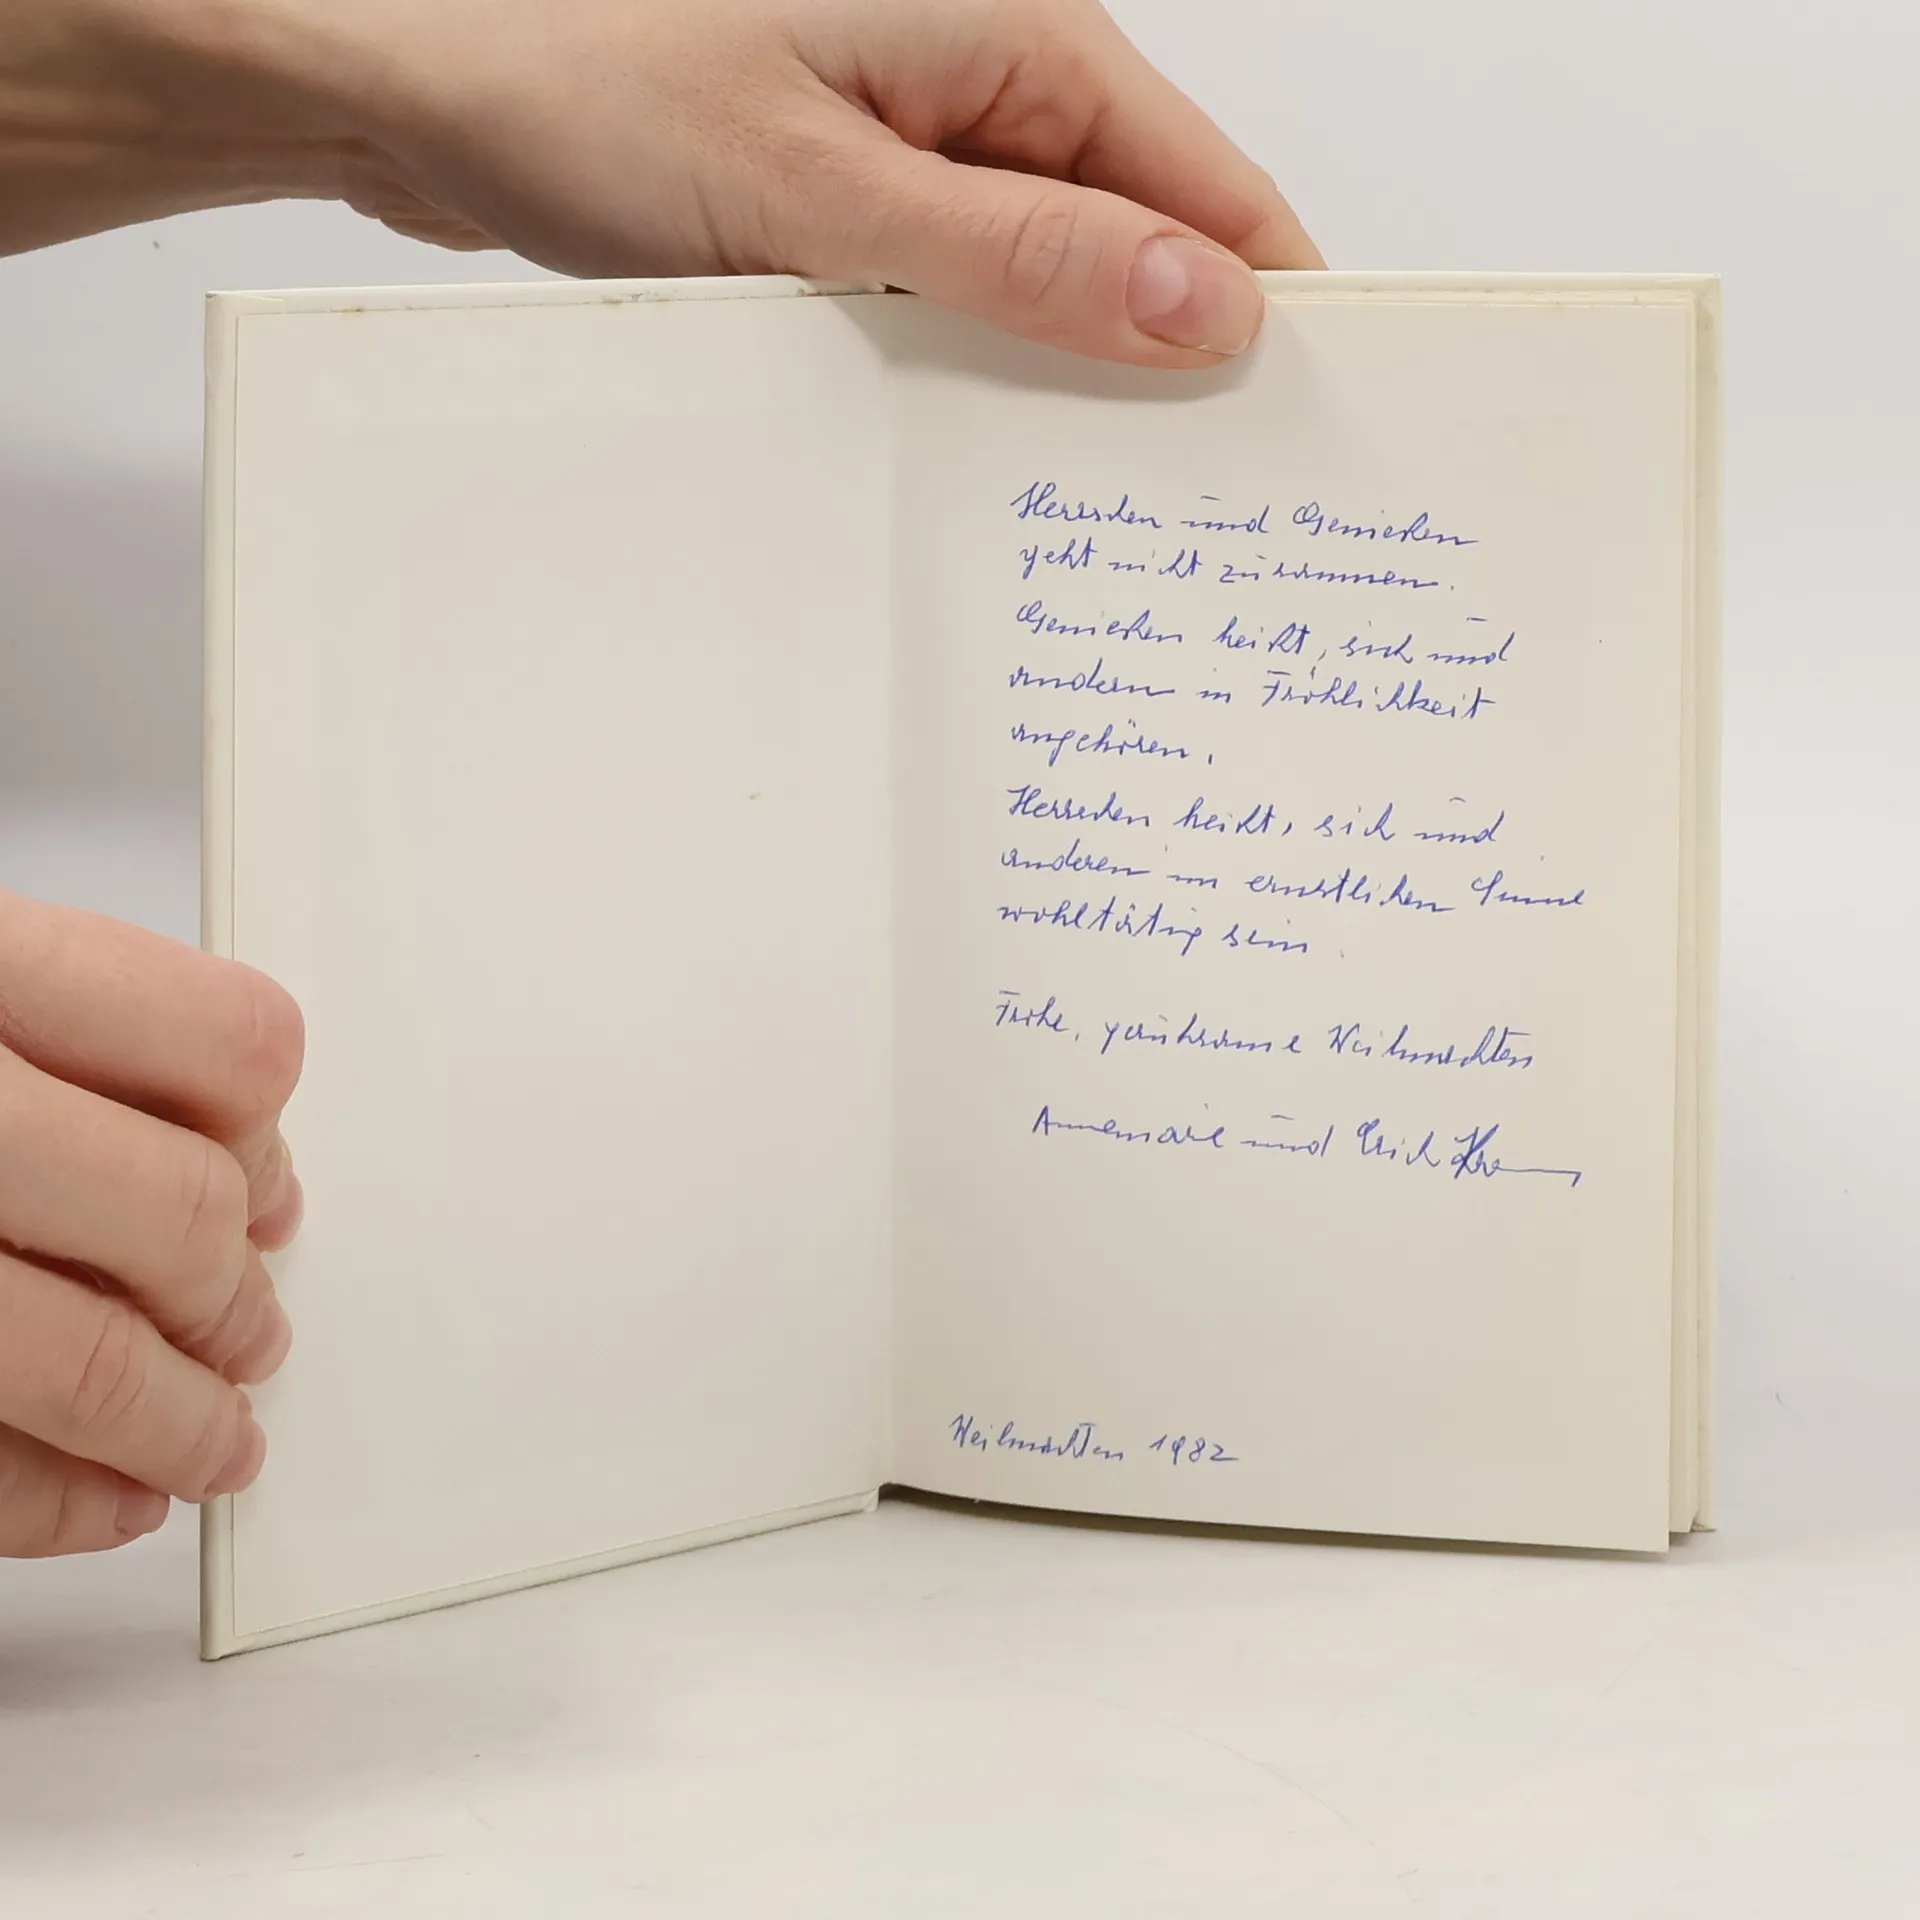 Herrschen und Genießen
geht nicht zusammen.
Genießen heißt, sich und
andern in Fröhlichkeit
angehören.
Herrschen heißt, sich und
anderen im ernstlichen Sinne
wohltätig sein.
Frohe, geruhsame Weihnachten
Annemarie und Erich
Weihnachten 1982